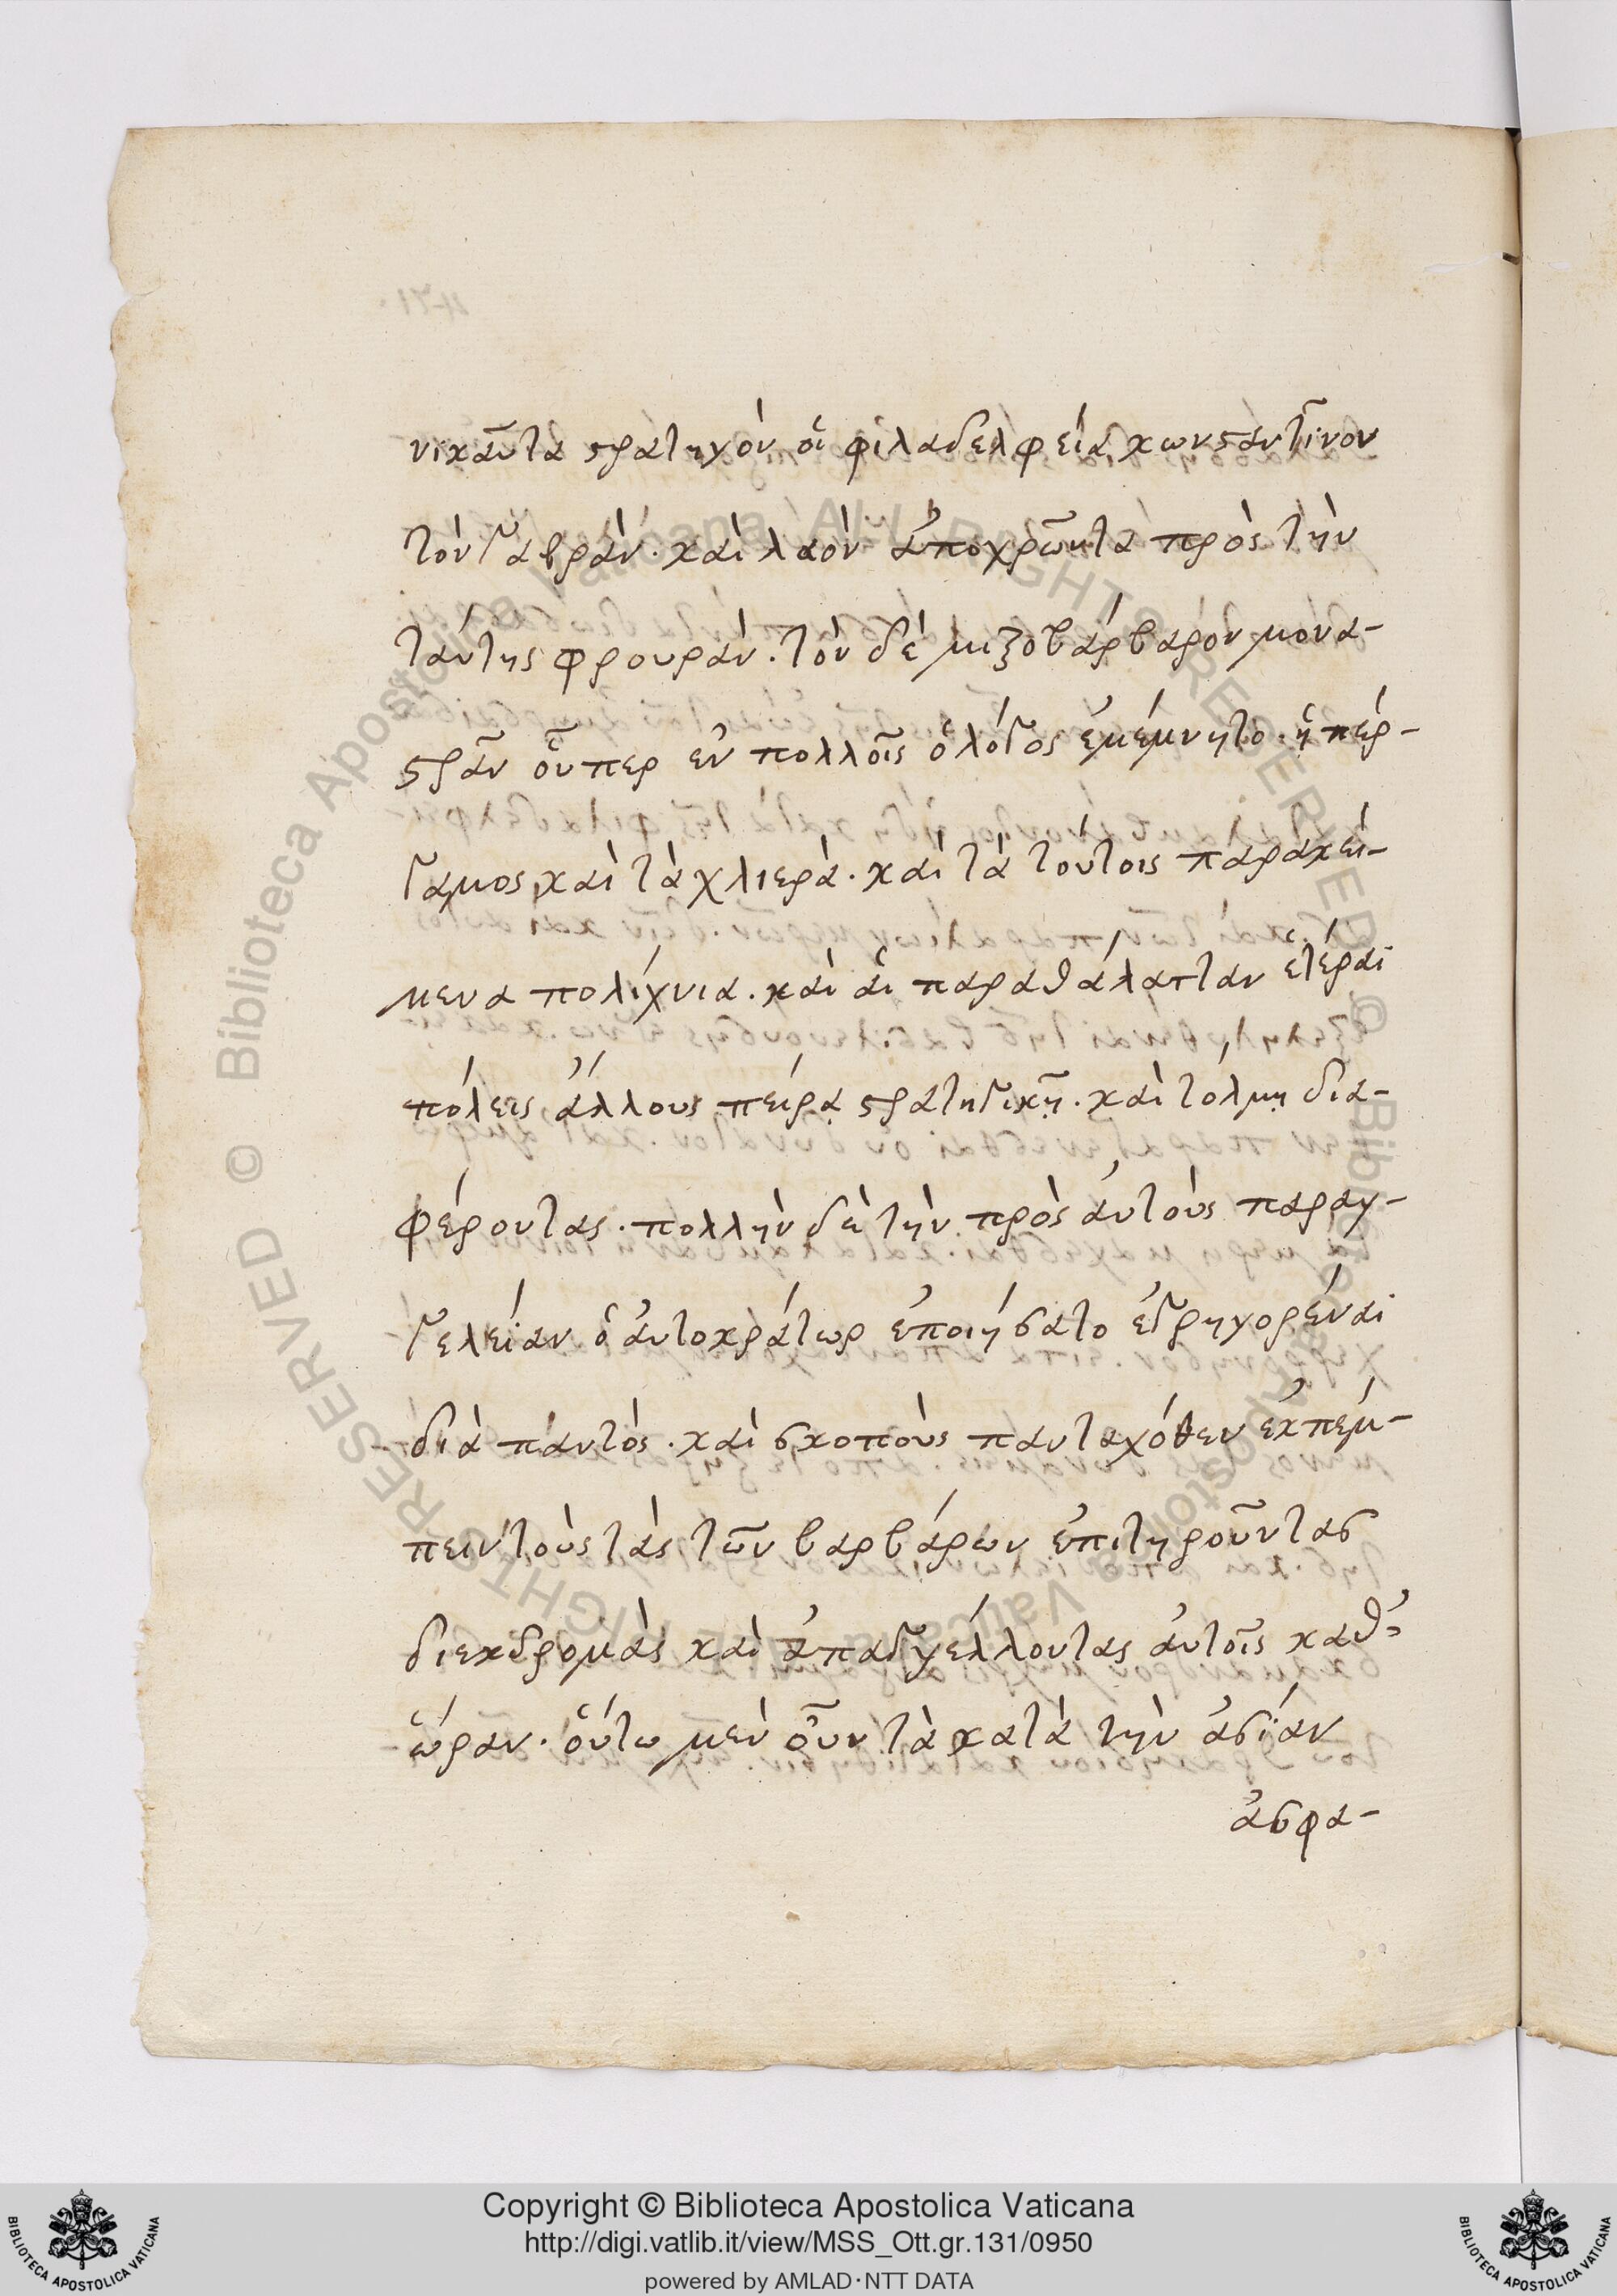 νικαῦτα στρατηγὸν οἱ φιλαδελφεία κωνσταντῖνον
τὸν Γαβρὰν· καὶ λαὸν ἀποχρῶντα πρὸς τὴν
ταύτης φρουράν· τὸν δὲ μιξοβάρβαρον μονα-
στρᾶν οὗπερ ἐν πολλοῖς ὁ λόγος ἐμέμνητο· ἡ πέρ-
γαμος, καὶ τὰ χλιερὰ· καὶ τὰ τούτοις παρακεί-
μενα πολίχνια· καὶ αἱ παραθάλατταν ἑτέραι
πόλεις, ἄλλους πείρᾳ στρατηγικῇ· καὶ τόλμῃ δια-
φέροντας· πολλὴν δὲ τὴν πρὸς αὐτοὺς παραγ-
γελείαν ὁ αὐτοκράτωρ ἐποιήσατο ἐγρηγορέναι
διὰ παντὸς· καὶ σκοποὺς πανταχόθεν ἐκπέμ-
πειν τοὺς τὰς τῶν βαρβάρων ἐπιτηροῦντας
διεκδρομὰς καὶ ἀπαγγέλλοντας αὐτοῖς καθ᾽
ὥραν· οὕτω μὲν οὖν τὰ κατὰ τὴν ἀσίαν
ἀσφα-
Copyright © Biblioteca Apostolica Vaticana
http://digi.vatlib.it/view/MSS_Ott.gr.131/0950
powered by AMLAD·NTT DATA
BIBLIOTECA APOSTOLICA VATICANA
BIBLIOTECA APOSTOLICA VATICANA